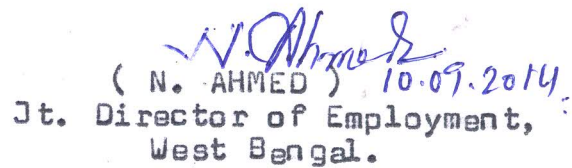 N. Ahmed
( N. AHMED ) 10.09.2014.
Jt. Director of Employment,
West Bengal.